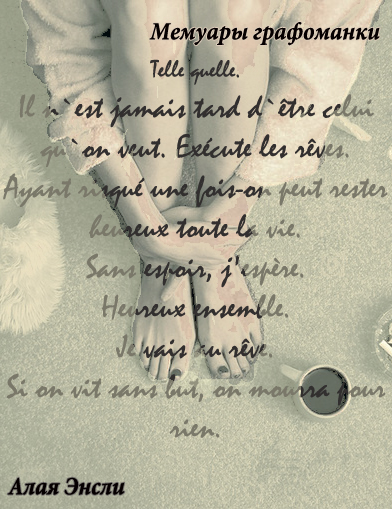 Мемуары графоманки
Telle quelle.
Il n`est jamais tard d`être celui
qu`on veut. Exécute les rêves.
Ayant risqué une fois-on peut rester
heureux toute la vie.
Sans espoir, j'espère.
Heureux ensemble.
Je vais au rêve.
Si on vit sans but, on mourra pour
rien.
Алая Энсли